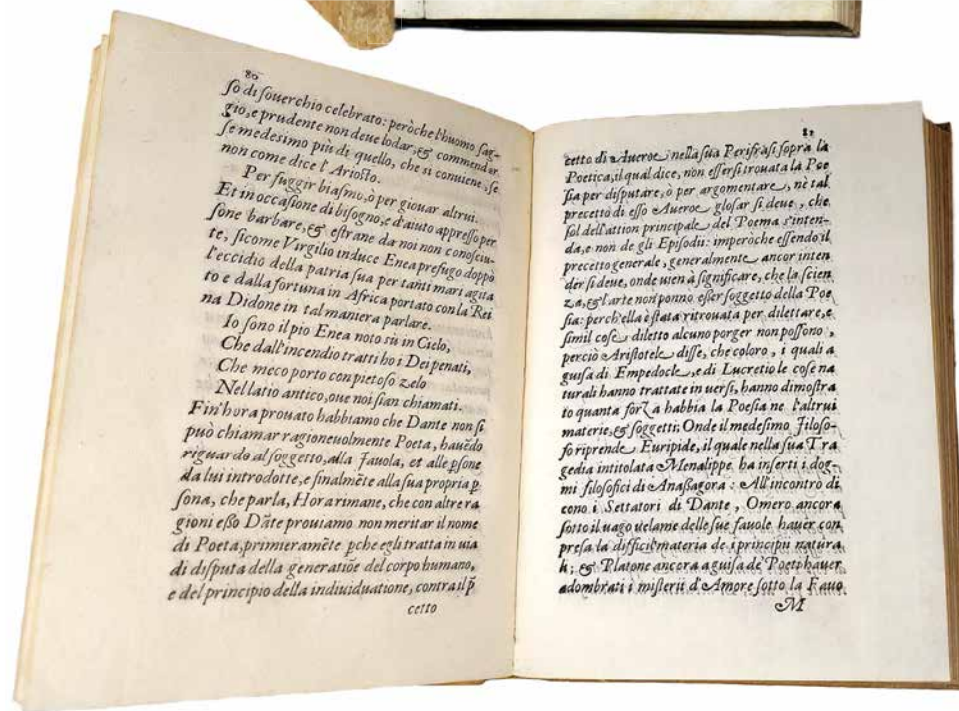 80
ſo di ſouerchio celebrato: peròche l'huomo ſag-
gio, e prudente non deue lodar, & commendar
ſe medesimo più di quello, che si conuiene, ſe
non come dice l'Ariosto.
Per fuggir biasmo, ò per giouar altrui.
Et in occaſione di bisogno, e d'aiuto appreſſo per
ſone barbare, & estrane da noi non conoſciu-
te, ſicome Virgilio induce Enea prefugo doppò
l'eccidio della patria ſua per tanti mari agita
to e dalla fortuna in Africa portato con la Rei
na Didone in tal maniera parlare.
Io ſono il pio Enea noto sù in Cielo,
Che dall'incendio tratti ho i Dei penati,
Che meco porto con pietoſo zelo
Nel latio antico, oue noi ſian chiamati.
Fin'hora prouato habbiamo che Dante non ſi
può chiamar ragioneuolmente Poeta, hauẽdo
riguardo al ſoggetto, alla Fauola, et alle pſone
da lui introdotte, e finalmẽte alla ſua propria p
ſona, che parla, Hora rimane, che con altre ra
gioni eßo Dãte prouiamo non meritar il nome
di Poeta, primieramẽte pche egli tratta in uia
di disputa della generatiõe del corpo humano,
e del principio della indiuiduatione, contra il p̃
cetto
81
cetto di Aueroe nella ſua Perifraſi ſopra la
Poetica, il qual dice, non eſſerſi trouata la Poe
ſia per disputare, ò per argomentare, nè tal
precetto di eſſo Aueroe gloſar ſi deue, che
ſol dell'attion principale del Poema s'inten-
da, e non de gli Episodii: imperòche eſſendo il
precetto generale, generalmente ancor inten
der ſi deue, onde uien à ſignificare, che la ſcien
za, & l'arte non ponno eſſer ſoggetto della Poe
ſia: perch'ella è ſtata ritrouata per dilettare, e
ſimil coſe diletto alcuno porger non poſſono,
perciò Aristotele diſſe, che coloro, i quali a
guiſa di Empedocle, e di Lucretio le coſe na
turali hanno trattate in uerſi, hanno dimoſtra
to quanta forza habbia la Poeſia ne l'altrui
materie, & ſoggetti; Onde il medeſimo Filoſo-
fo riprende Euripide, il quale nella ſua Tra
gedia intitolata Menalippe ha inſerti i dog-
mi filoſofici di Anaßagora: All'incontrò di
cono i Settatori di Dante, Omero ancora
ſotto il uago uelame delle ſue fauole hauer con
preſa la difficil materia de i principii natura
li; & Platone ancora a guiſa de' Poeti hauer
adombrati i miſterii d'Amore ſotto la Fauo
M